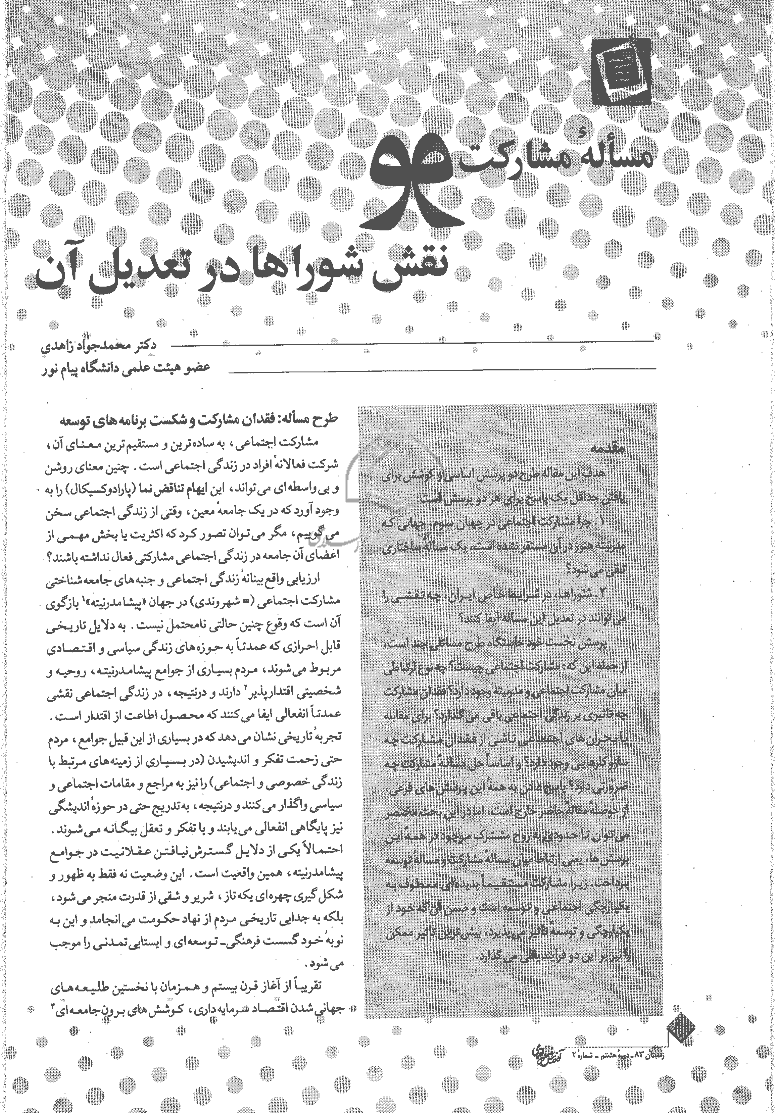 مسألهٔ مشارکت و
نقش شوراها در تعدیل آن
دکتر محمدجواد زاهدی
عضو هیئت علمی دانشگاه پیام نور
مقدمه
هدف این مقاله طرح دو پرسش اساسی و کوشش برای
یافتن حداقل یک پاسخ برای هر دو پرسش است:
۱. چرا مشارکت اجتماعی در جهان سوم، جهانی که
مدرنیته هنوز در آن مستقر نشده است، یک مسألهٔ ساختاری
تلقی می‌شود؟
۲. شوراها، در شرایط خاص ایران، چه نقشی را
می‌توانند در تعدیل این مسأله ایفا کنند؟
پرسش نخست خود خاستگاه طرح مسائلی چند است،
از جمله این که: مشارکت اجتماعی چیست؟ چه نوع ارتباطی
میان مشارکت اجتماعی و مدرنیته وجود دارد؟ فقدان مشارکت
چه تأثیری بر زندگی اجتماعی باقی می‌گذارد؟ برای مقابله
با بحران‌های اجتماعی ناشی از فقدان مشارکت چه
سازوکارهایی وجود دارد؟ و اساساً حل مسألهٔ مشارکت چه
ضرورتی دارد؟ پاسخ دادن به همهٔ این پرسش‌های فرعی،
از حوصلهٔ مقالهٔ حاضر خارج است، اما در این بحث مختصر
می‌توان تا حدودی به روح مشترک موجود در همهٔ این
پرسش‌ها، یعنی ارتباط میان مسألهٔ مشارکت و مسألهٔ توسعه
پرداخت. زیرا مشارکت مستقیماً پدیده‌ای معطوف به
یکپارچگی اجتماعی و توسعه است و ضمن آن که خود از
یکپارچگی و توسعه تأثیر می‌پذیرد، بیش‌ترین تأثیر ممکن
را نیز بر این دو فرآیند باقی می‌گذارد.
طرح مسأله: فقدان مشارکت و شکست برنامه‌های توسعه
مشارکت اجتماعی، به ساده‌ترین و مستقیم‌ترین معنای آن،
شرکت فعالانهٔ افراد در زندگی اجتماعی است. چنین معنای روشن
و بی‌واسطه‌ای می‌تواند، این ایهام تناقض نما (پارادوکسیکال) را به
وجود آورد که در یک جامعهٔ معین، وقتی از زندگی اجتماعی سخن
می‌گوییم، مگر می‌توان تصور کرد که اکثریت یا بخش مهمی از
اعضای آن جامعه در زندگی اجتماعی مشارکتی فعال نداشته باشند؟
ارزیابی واقع بینانهٔ زندگی اجتماعی و جنبه‌های جامعه‌شناختی
مشارکت اجتماعی (= شهروندی) در جهان «پیشامدرنیته»۱ بازگوی
آن است که وقوع چنین حالتی نامحتمل نیست. به دلایل تاریخی
قابل احرازی که عمدتاً به حوزه‌های زندگی سیاسی و اقتصادی
مربوط می‌شوند، مردم بسیاری از جوامع پیشامدرنیته، روحیه و
شخصیتی اقتدارپذیر۲ دارند و درنتیجه، در زندگی اجتماعی نقشی
عمدتاً انفعالی ایفا می‌کنند که محصول اطاعت از اقتدار است.
تجربهٔ تاریخی نشان می‌دهد که در بسیاری از این قبیل جوامع، مردم
حتی زحمت تفکر و اندیشیدن (در بسیاری از زمینه‌های مرتبط با
زندگی خصوصی و اجتماعی) را نیز به مراجع و مقامات اجتماعی و
سیاسی واگذار می‌کنند و درنتیجه، به‌تدریج حتی در حوزهٔ اندیشگی
نیز پایگاهی انفعالی می‌یابند و با تفکر و تعقل بیگانه می‌شوند.
احتمالاً یکی از دلایل گسترش نیافتن عقلانیت در جوامع
پیشامدرنیته، همین واقعیت است. این وضعیت نه فقط به ظهور و
شکل گیری چهره‌ای یکه‌تاز، شریر و شقی از قدرت منجر می‌شود،
بلکه به جدایی تاریخی مردم از نهاد حکومت می‌انجامد و این به
نوبهٔ خود گسست فرهنگی‌ـ توسعه‌ای و ایستایی تمدنی را موجب
می‌شود.
تقریباً از آغاز قرن بیستم و همزمان با نخستین طلیعه‌های
جهانی شدن اقتصاد سرمایه‌داری، کوشش‌های برون‌جامعه‌ای۳
زمستان ۸۳ـ دورهٔ هشتم ـ شمارهٔ ۲